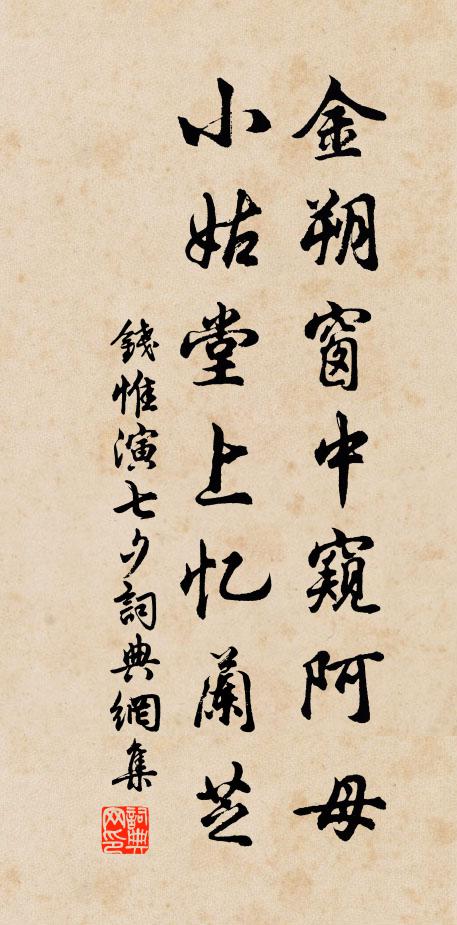 金朔窗中窺阿母
小姑堂上忆蘭芝
錢惟演七夕詞典網集
詞典网印